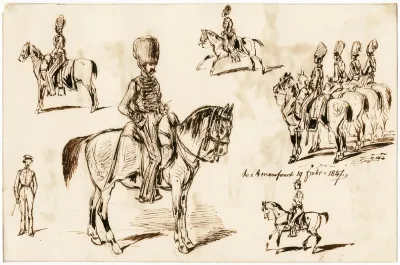 te Amersfoort 19 Febr. 1847.